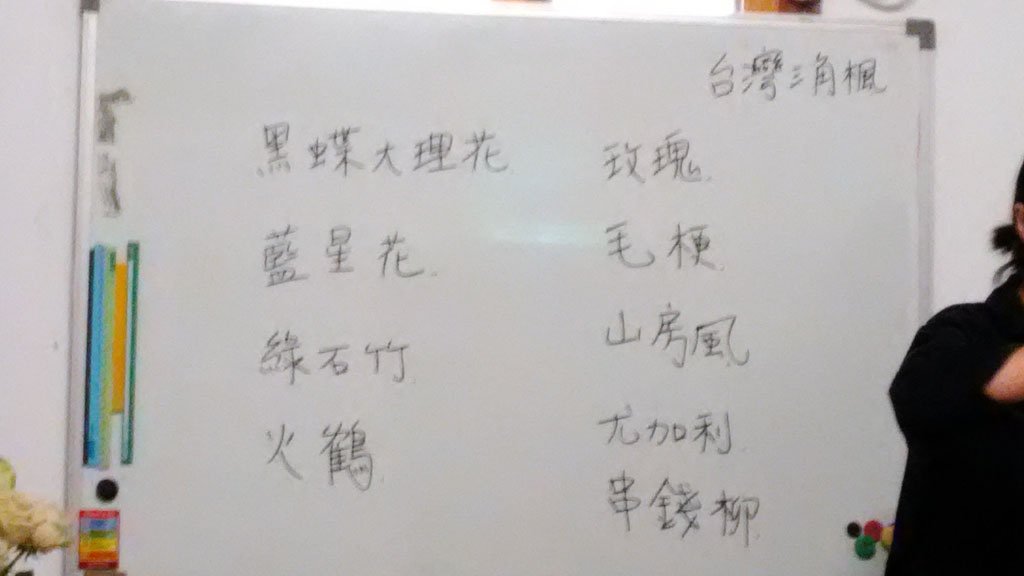 台灣三角楓
黑蝶大理花
藍星花
綠石竹
火鶴
玫瑰
毛梗
山房風
尤加利
串錢柳